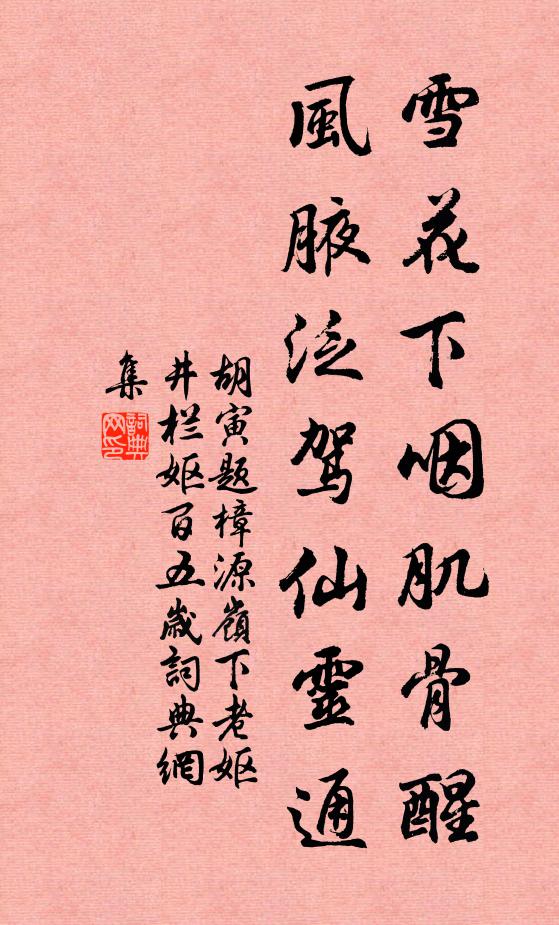 雪花下咽肌骨醒
風腋泛駕仙靈通
胡寅题樟源嶺下老妪
井栏妪百五歲詞典網
集
詞典
网印